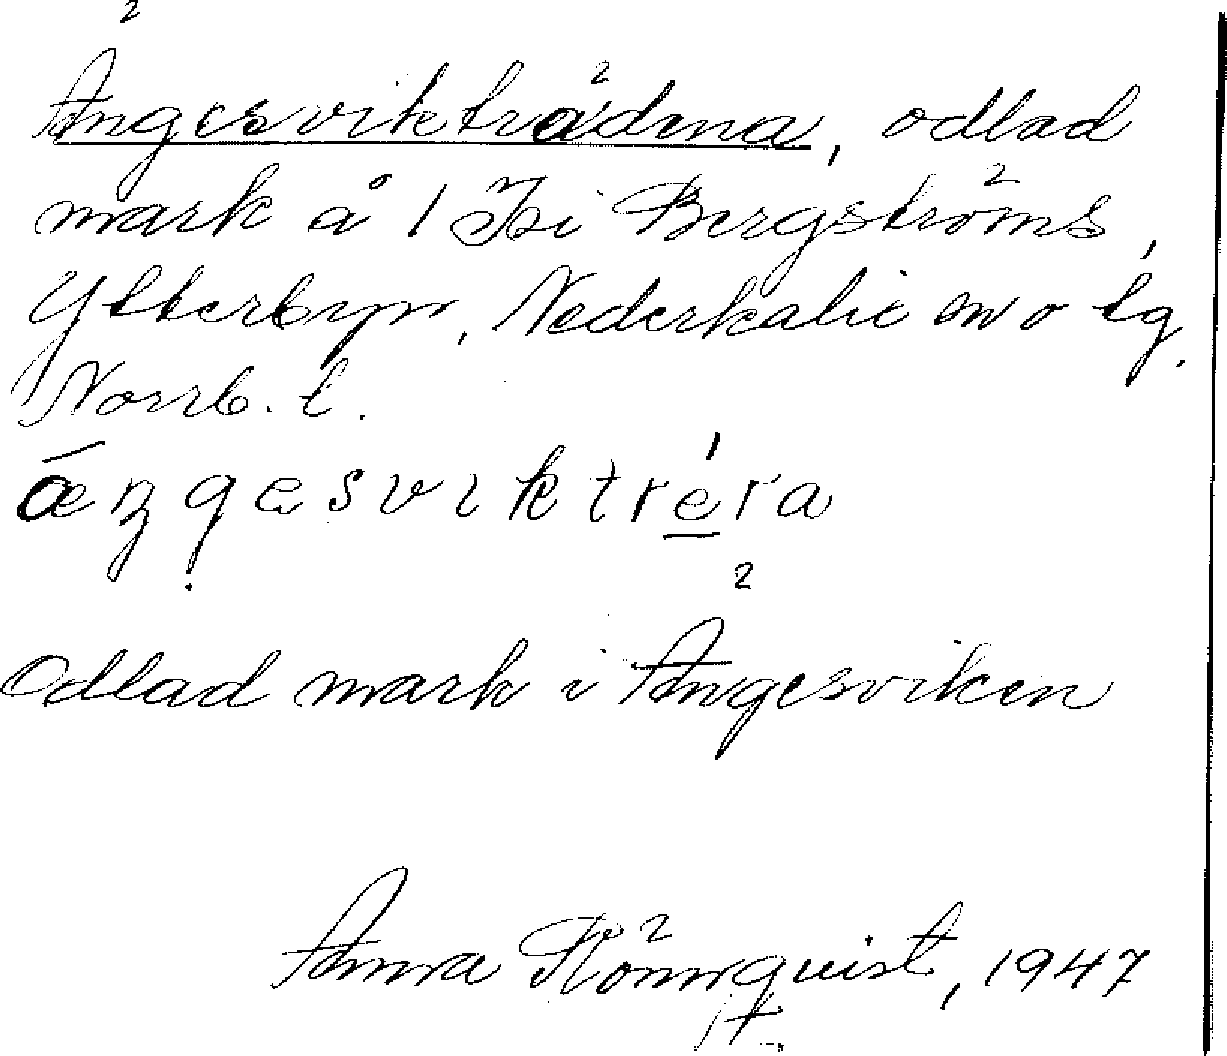 Ängesvikträdena, odlad
mark å 1 Isi Bergströms,
Ytterbyn, Nederkalix sn o tg
Norrb. l.
ængesviktréra
Odlad mark i Ängesviken
Anna Rönnquist, 1947